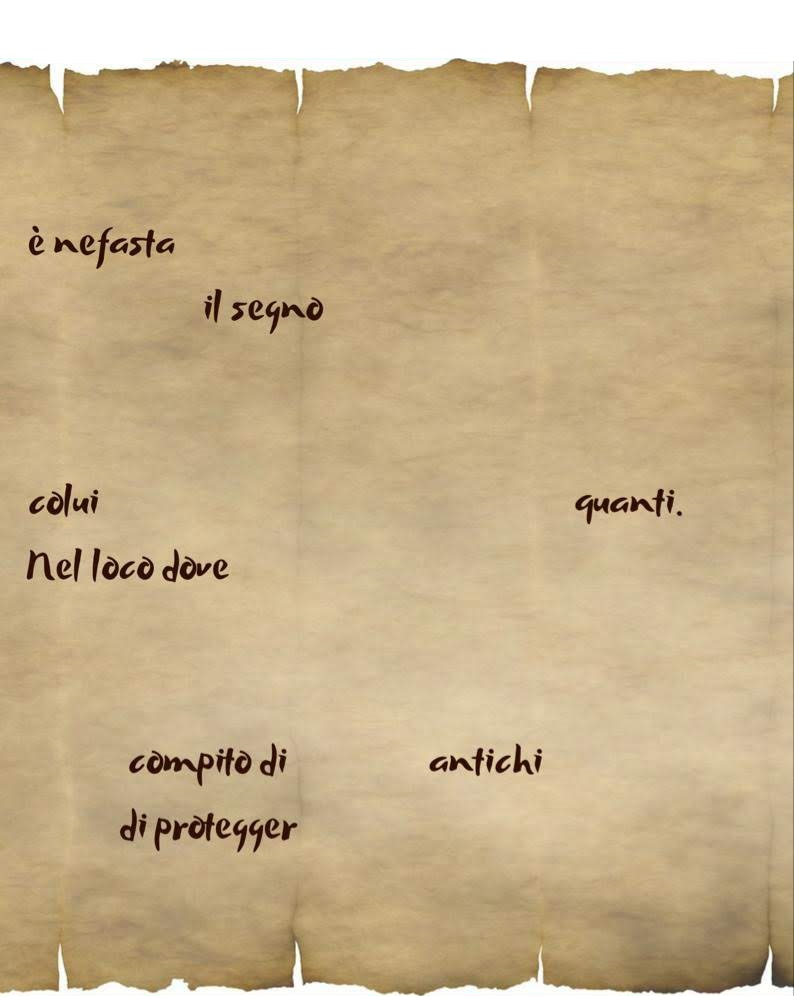 è nefasta
il segno
colui quanti.
Nel loco dove
compito di antichi
di protegger